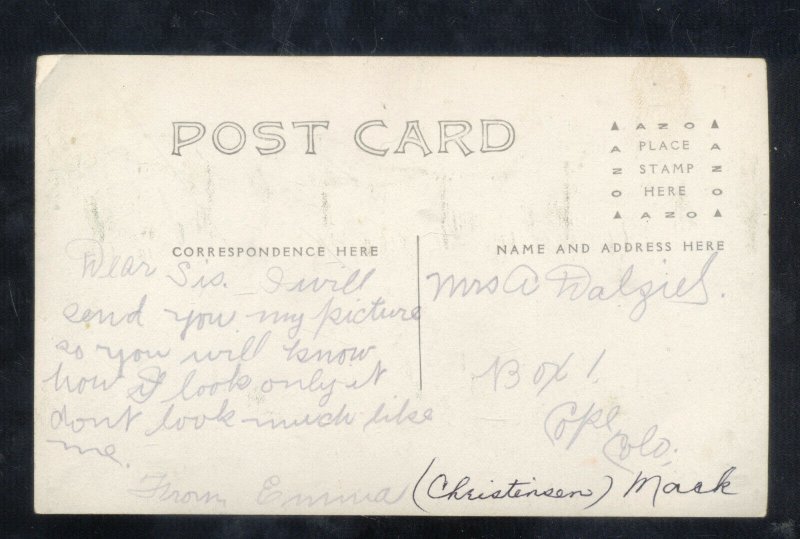 POST CARD
▲ AZO ▲
A PLACE A
Z STAMP Z
O HERE O
▲ AZO ▲
CORRESPONDENCE HERE
NAME AND ADDRESS HERE
Dear Sis. I will
send you my picture
so you will know
how I look only it
dont look much like
me.
From Emma (Christensen) Mack
Mrs A Dalziel.
Box 1.
Cope,
Colo.